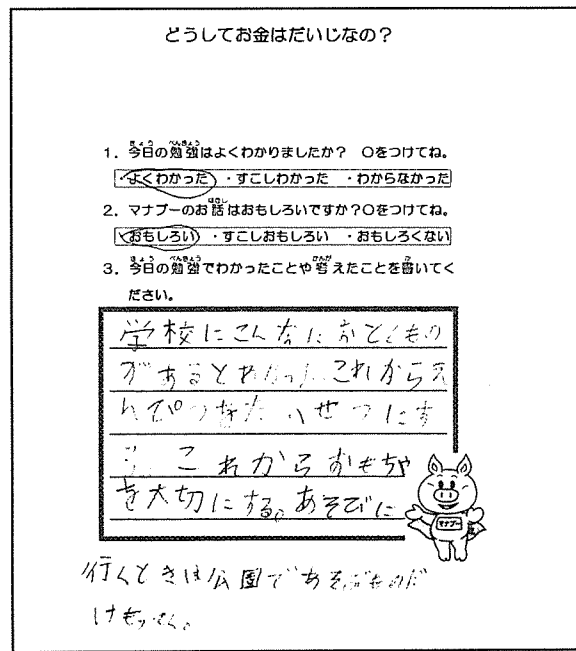 どうしてお金はだいじなの？
1．今日の勉強はよくわかりましたか？　○をつけてね。
・よくわかった　・すこしわかった　・わからなかった
2．マナブーのお話はおもしろいですか？○をつけてね。
・おもしろい　・すこしおもしろい　・おもしろくない
3．今日の勉強でわかったことや考えたことを書いてく
ださい。
学校にこんなにおとしもの
があるとわかった。これからえ
んぴつをたいせつにす
る。これからおもちゃ
を大切にする。あそびに
マナブー
行くときは公園であそぶものだ
けもってく。